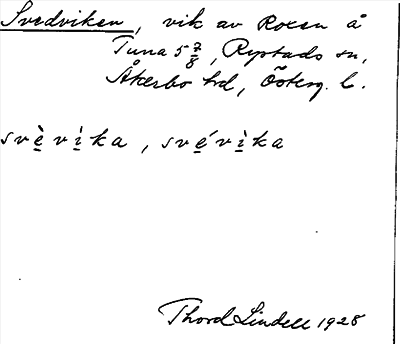 Svedviken, vik av Roxen å
Tuna 5 7/8, Rystads sn,
Åkerbo hd, Österg. l.
svè̱vì̱ka, své̱vì̱ka
Thord Lindell 1928